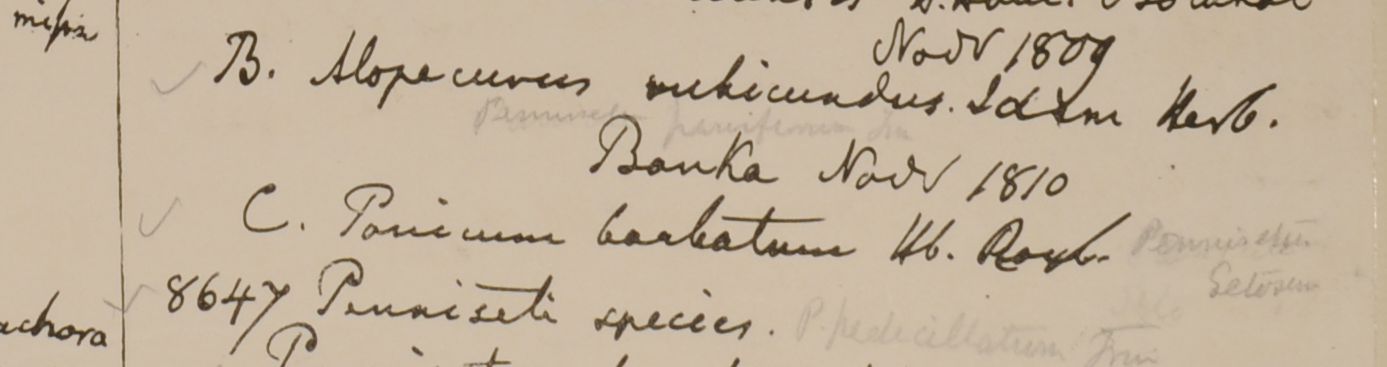 Novr 1809
B. Alopecurus rubicundus. Idem Herb.
parviflorum Trin
Banka Novr 1810
C. Panicum barbatum Hb. Roxb. Pennisetum
Setosum
8647 Penniseti species. P. pedicellatum Trin
achora